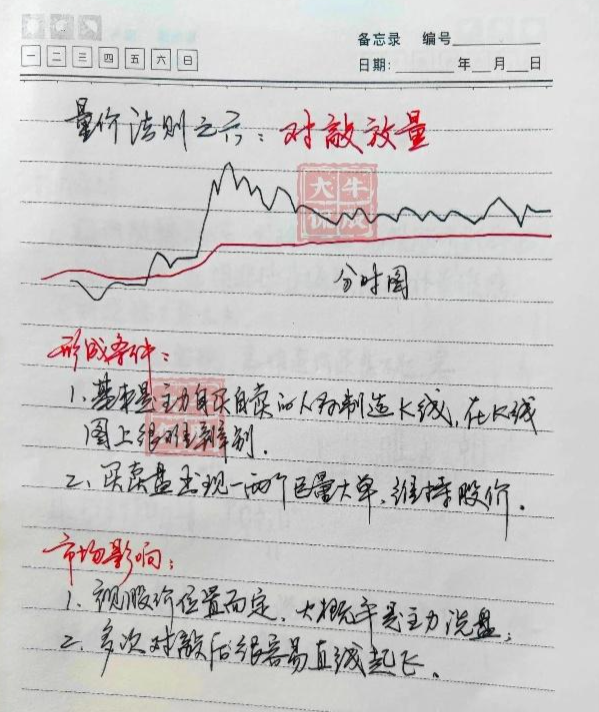 备忘录 编号
一 二 三 四 五 六 日
日期: 年 月 日
量价法则之六:对敲放量
大牛
分时图
形成条件:
1、基本是主力自买自卖的人为制造K线,在K线
图上很难辨别.
2、买卖盘出现一两个巨量大单,维持股价.
市场影响:
1、视股价位置而定,大概率是主力洗盘;
2、多次对敲后很容易直线起飞.